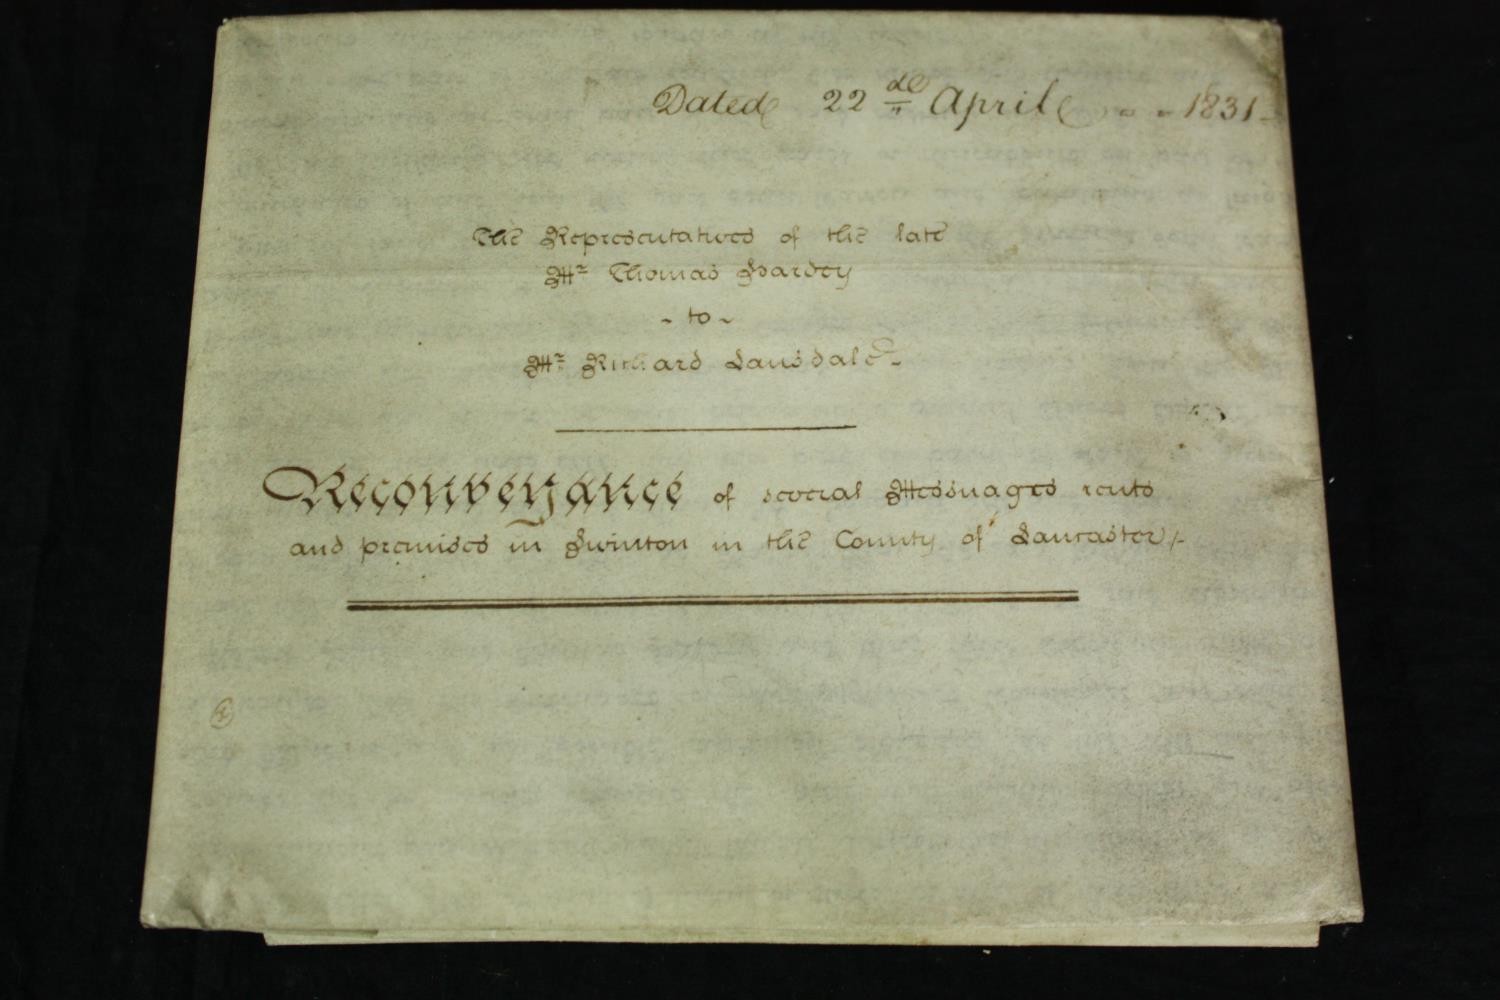 Dated 22d April 1831
The Representatives of the late
Mr Thomas Hardey
- to -
Mr Richard Lansdale
Reconveyance of several Messuages rents
and premises in Swinton in the County of Lancaster